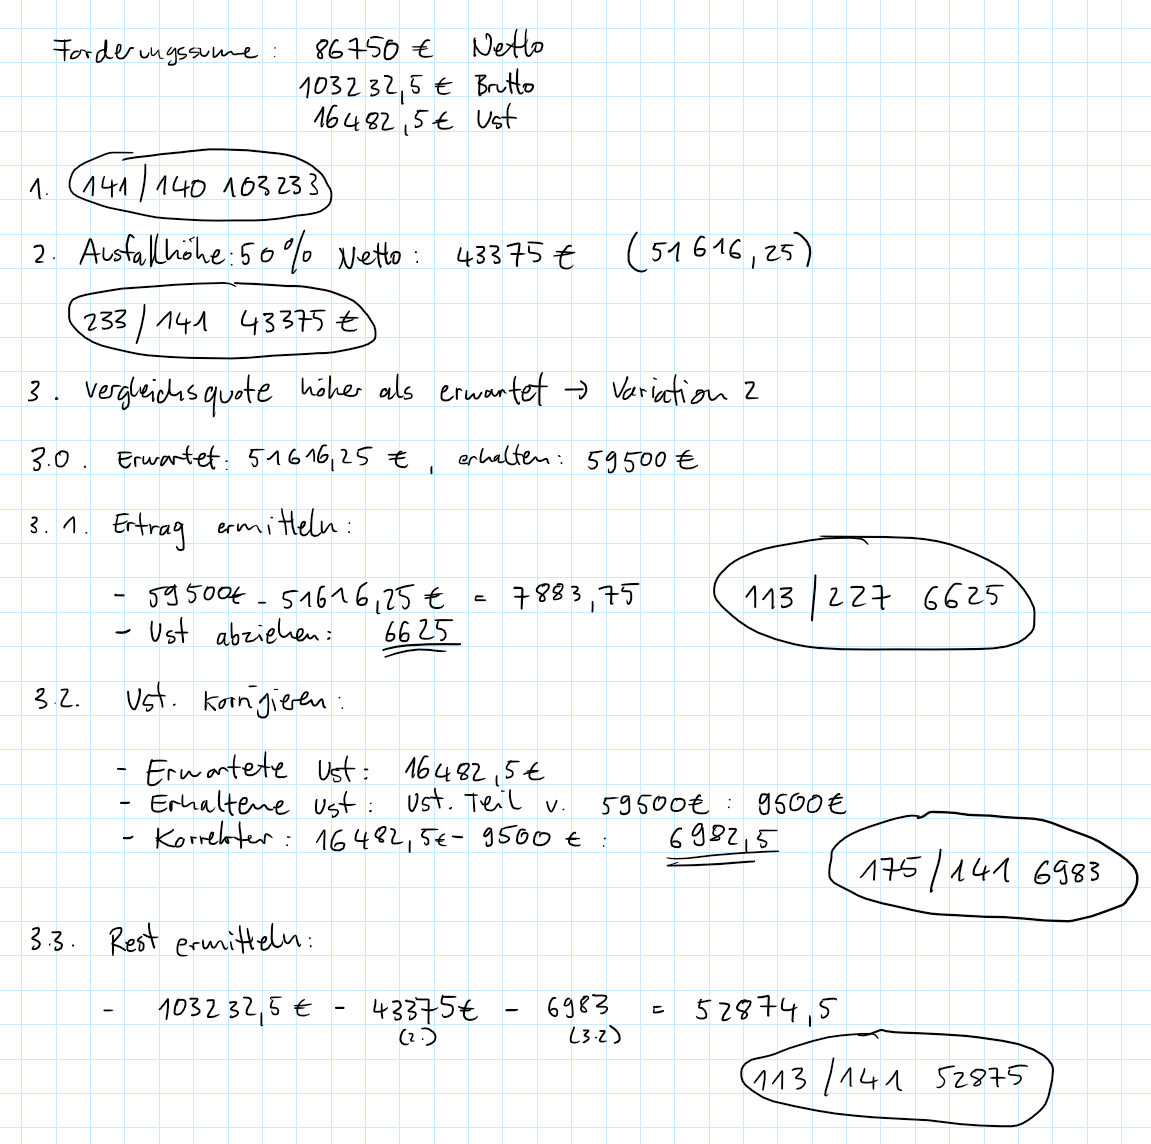 Forderungssume: 86750 € Netto
103232,5 € Brutto
16482,5€ Ust
1. 141/140 103233
2. Ausfallhöhe: 50% Netto: 43375 € (51616,25)
233/141 43375 €
3. Vergleichsquote höher als erwartet → Variation 2
3.0. Erwartet: 51616,25 €, erhalten: 59500 €
3.1. Ertrag ermitteln:
- 59500€ - 51616,25 € = 7883,75
- Ust abziehen: 6625
113/227 6625
3.2. Ust. korrigieren:
- Erwartete Ust: 16482,5€
- Erhaltene Ust: Ust. Teil v. 59500€: 9500€
- Korrektur: 16482,5€ - 9500 €: 6982,5
175/141 6983
3.3. Rest ermitteln:
- 103232,5 € - 43375€ - 6983 = 52874,5
(2.) (3.2)
113/141 52875